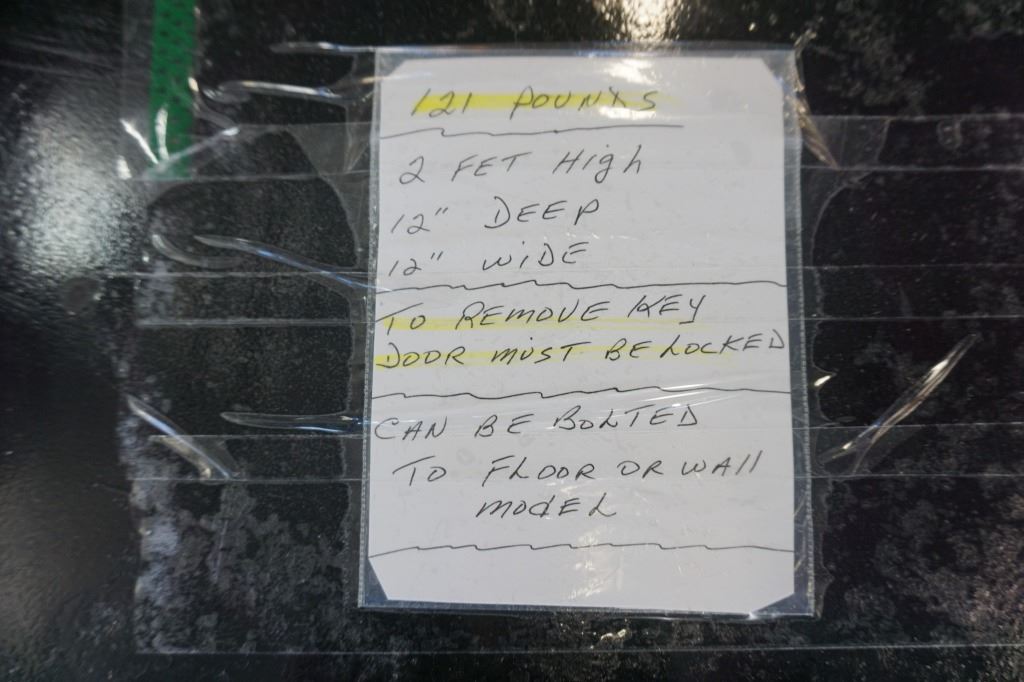 121 POUNDS
2 FET High
12" DEEP
12" WiDE
TO REMOVE KEY
DOOR MUST BE LOCKED
CAN BE BOLTED
TO FLOOR OR WAll
MODEL